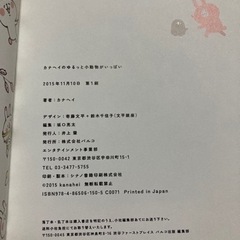 カナヘイのゆるっと小動物がいっぱい
2015年11月10日 第1刷
著者:カナヘイ
デザイン:菅藤文平+鈴木千佳子(文平銀座)
編集:坂口亮太
発行人:井上肇
発行所:株式会社パルコ
エンタテインメント事業部
〒150-0042 東京都渋谷区宇田川町15-1
電話:03-3477-5755
印刷・製本:シナノ書籍印刷株式会社
©2015 kanahei 無断転載禁止
ISBN978-4-86506-150-5 C0071 Printed in Japan
落丁本・乱丁本は購入書店を明記のうえ、小社編集部あてにお送り下さい。
送料小社負担にてお取り替えいたします。
〒150-0045 東京都渋谷区神泉町8-16 渋谷ファーストプレイス パルコ出版 編集部